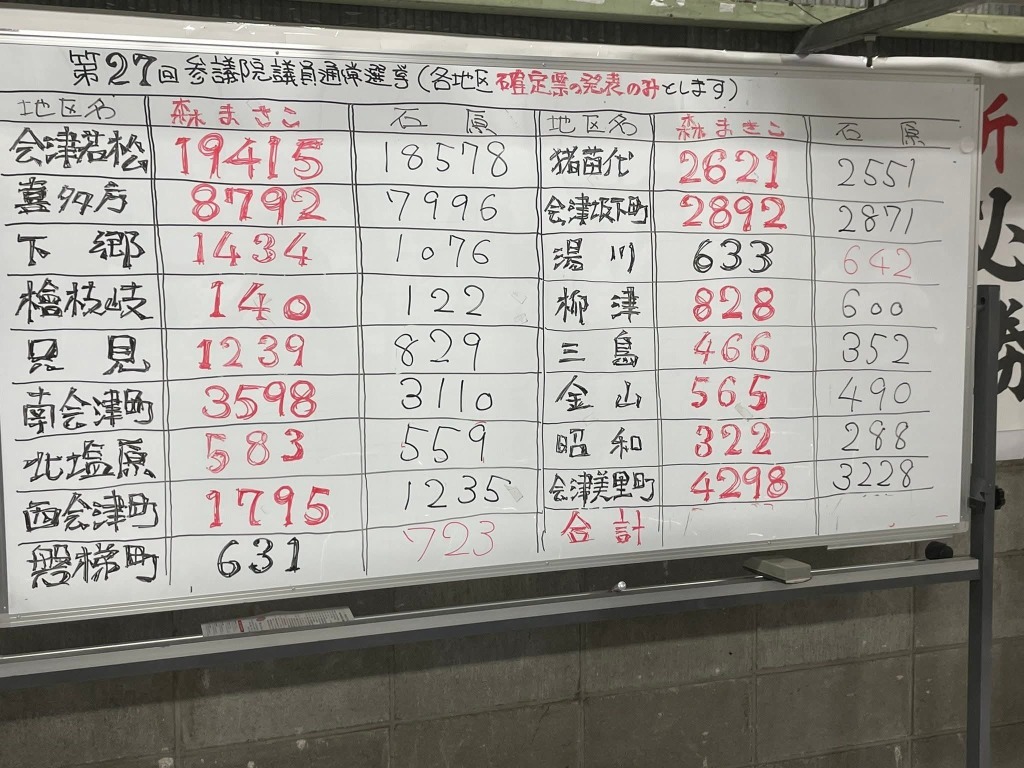 第27回 参議院議員通常選挙(各地区 確定票の発表のみとします)
地区名 森まさこ 石原 地区名 森まさこ 石原
会津若松 19415 18578 猪苗代 2621 2551
喜多方 8792 7996 会津坂下町 2892 2871
下郷 1434 1076 湯川 633 642
檜枝岐 140 122 柳津 828 600
只見 1239 829 三島 466 352
南会津町 3598 3110 金山 565 490
北塩原 583 559 昭和 322 288
西会津町 1795 1235 会津美里町 4298 3228
磐梯町 631 723 合計
必勝